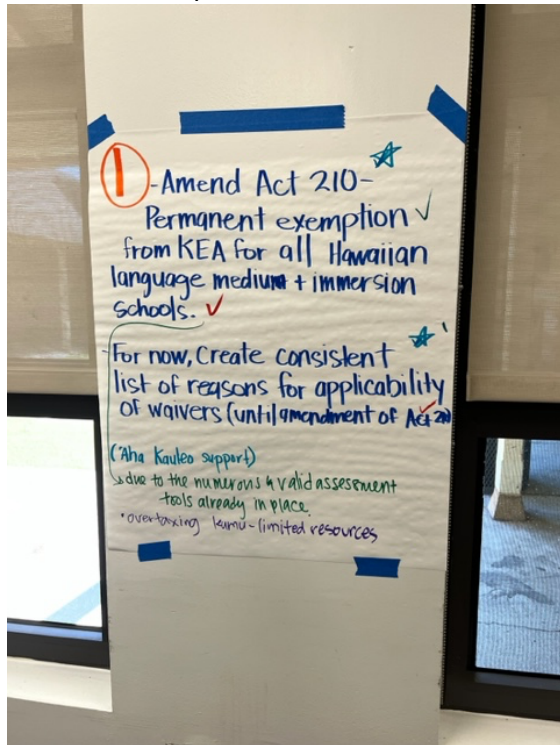 1 -Amend Act 210-
Permanent exemption
from KEA for all Hawaiian
language medium + immersion
schools.
-For now, Create consistent
list of reasons for applicability
of waivers (until amendment of Act 210)
('Aha Kauleo support)
due to the numerous & valid assessment
tools already in place.
•overtaxing kumu-limited resources